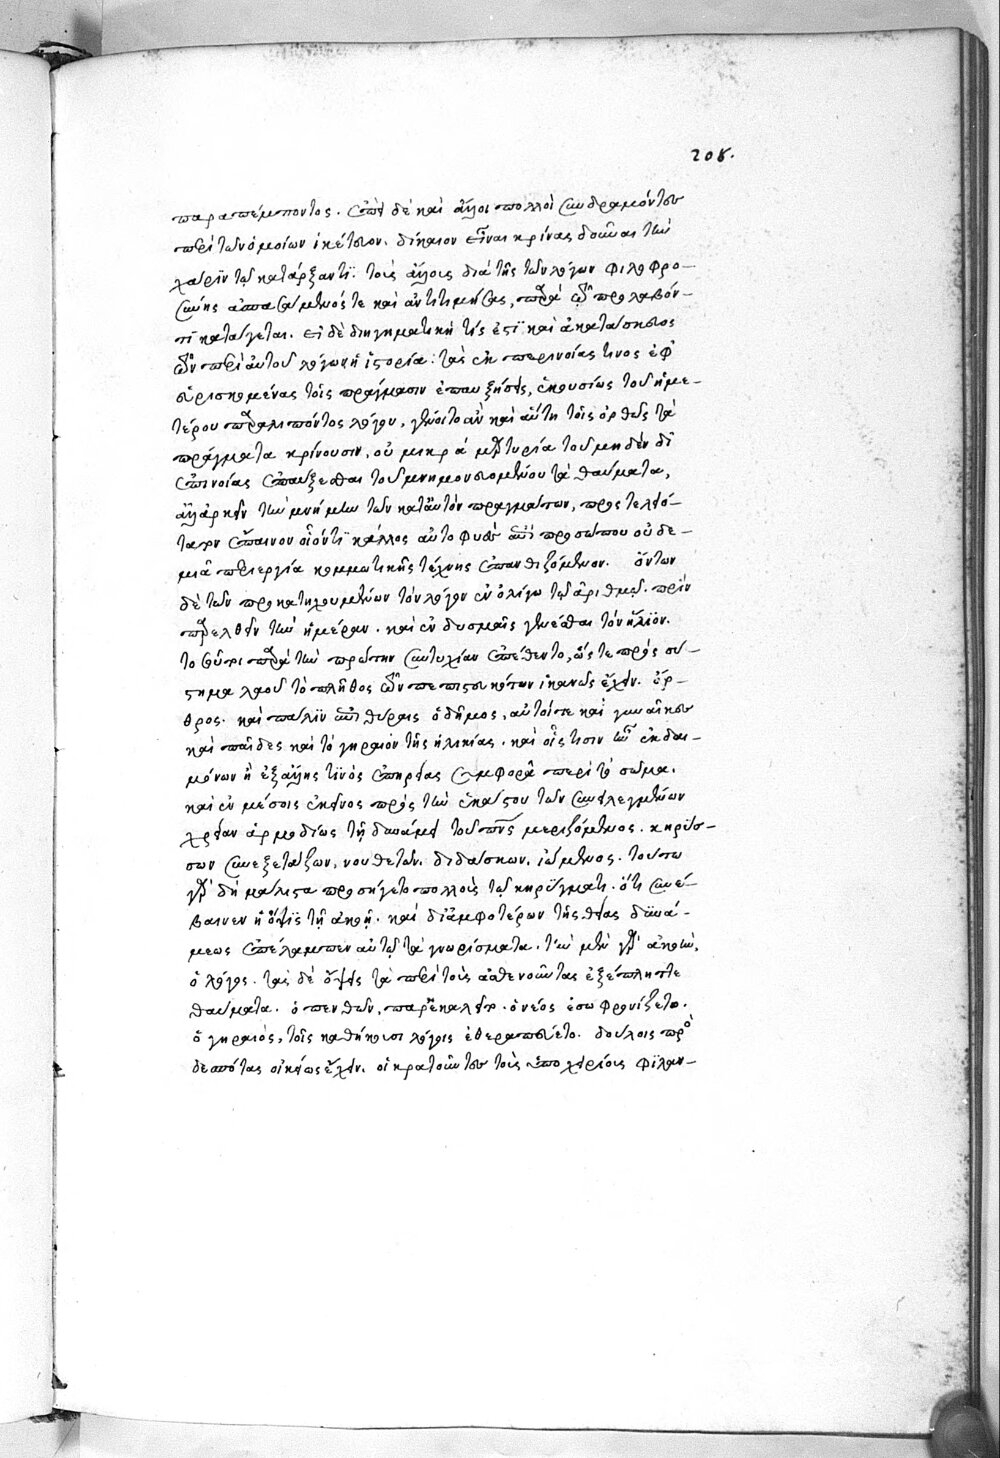 208.
παραπέμποντος. ἐπεὶ δὲ καὶ ἄλλοι πολλοὶ συνδραμόντων
περὶ τῶν ὁμοίων ἱκέτευον. δίκαιον εἶναι κρίνας δοῦναι τὴν
χάριν τῷ κατάρξαντι. τοὺς ἄλλους διὰ τῆς τῶν λόγων φιλοφρο-
σύνης ἀσπασάμενός τε καὶ ἀντιτιμήσας, παρὰ τῷ προλαβόν-
τι κατάγεται. εἰ δὲ διηγηματική τίς ἐστι καὶ ἀκατάσκευος
τῶν περὶ αὐτοῦ λόγων ἡ ἱστορία. τὰς ἐκ περινοίας τινος ἐφ
εὑρισκομένας τοῖς πράγμασιν ἐπαυξήσεις, ἑκουσίως τοῦ ἡμε-
τέρου παραλιπόντος λόγου, γένοιτο ἂν καὶ αὕτη τοῖς ὀρθῶς τὰ
πράγματα κρίνουσιν, οὐ μικρὰ μαρτυρία τοῦ μηδὲν δι
ἐπινοίας ἐπαύξεσθαι τοῦ μνημονευομένου τὰ θαύματα,
ἀλλ' ἀρκεῖν τὴν μνήμην τῶν κατ' αὐτὸν πραγμάτων, πρὸς τελεώ-
τατον ἔπαινον οἷόν τι κάλλος αὐτοφυὲς ἐπὶ προσώπου οὐδε-
μιᾷ περιεργίᾳ κομμωτικῆς τέχνης ἐπανθιζόμενον. ὄντων
δὲ τῶν προκατηχουμένων τὸν λόγον ἐν ὀλίγῳ τῷ ἀριθμῷ. πρὶν
παρελθεῖν τὴν ἡμέραν. καὶ ἐν δυσμαῖς γενέσθαι τὸν ἥλιον.
τοσοῦτοι παρὰ τὴν πρώτην συντυχίαν ἐπέθεντο, ὥστε πρὸς σύ-
στημα λαοῦ τὸ πλῆθος τῶν πεπιστευκότων ἱκανῶς ἔχειν. ὄρ-
θρος. καὶ πάλιν ἐπὶ θύραις ὁ δῆμος, αὐτοί τε καὶ γυναῖκες
καὶ παῖδες καὶ τὸ γηραιὸν τῆς ἡλικίας. καὶ οἷς τισιν ἦν ἐκ δαι-
μόνων ἢ ἐξ ἄλλης τινὸς ἐπηρείας συμφορὰ περὶ τὸ σῶμα.
καὶ ἐν μέσοις ἐκεῖνος πρὸς τὴν ἑκάστου τῶν συνειλεγμένων
χρείαν ἁρμοδίως τῇ δυνάμει τοῦ πνς μεριζόμενος. κηρύσ-
σων συνεξετάζων, νουθετῶν. διδάσκων. ἰώμενος. τούτω
γὰρ δὴ μάλιστα προσήγετο πολλοὺς τῷ κηρύγματι. ὅτι συνέ-
βαινεν ἡ ὄψις τῇ ἀκοῇ. καὶ δι' ἀμφοτέρων τῆς θείας δυνά-
μεως ἐπέλαμπεν αὐτῷ τὰ γνωρίσματα. τὴν μὲν γὰρ ἀκοὴν,
ὁ λόγος. τὰς δὲ ὄψεις τὰ περὶ τοὺς ἀσθενοῦντας ἐξέπληττε
θαύματα. ὁ πενθῶν, παρεκαλεῖτο. ὁ νέος ἐσωφρονίζετο.
ὁ γηραιὸς, τοῖς καθήκουσι λόγοις ἐθεραπεύετο. δούλοις πρὸ
δεσπότας οἰκείως ἔχειν. οἱ κρατοῦντων τοὺς ὑποχειρίοις φιλαν-